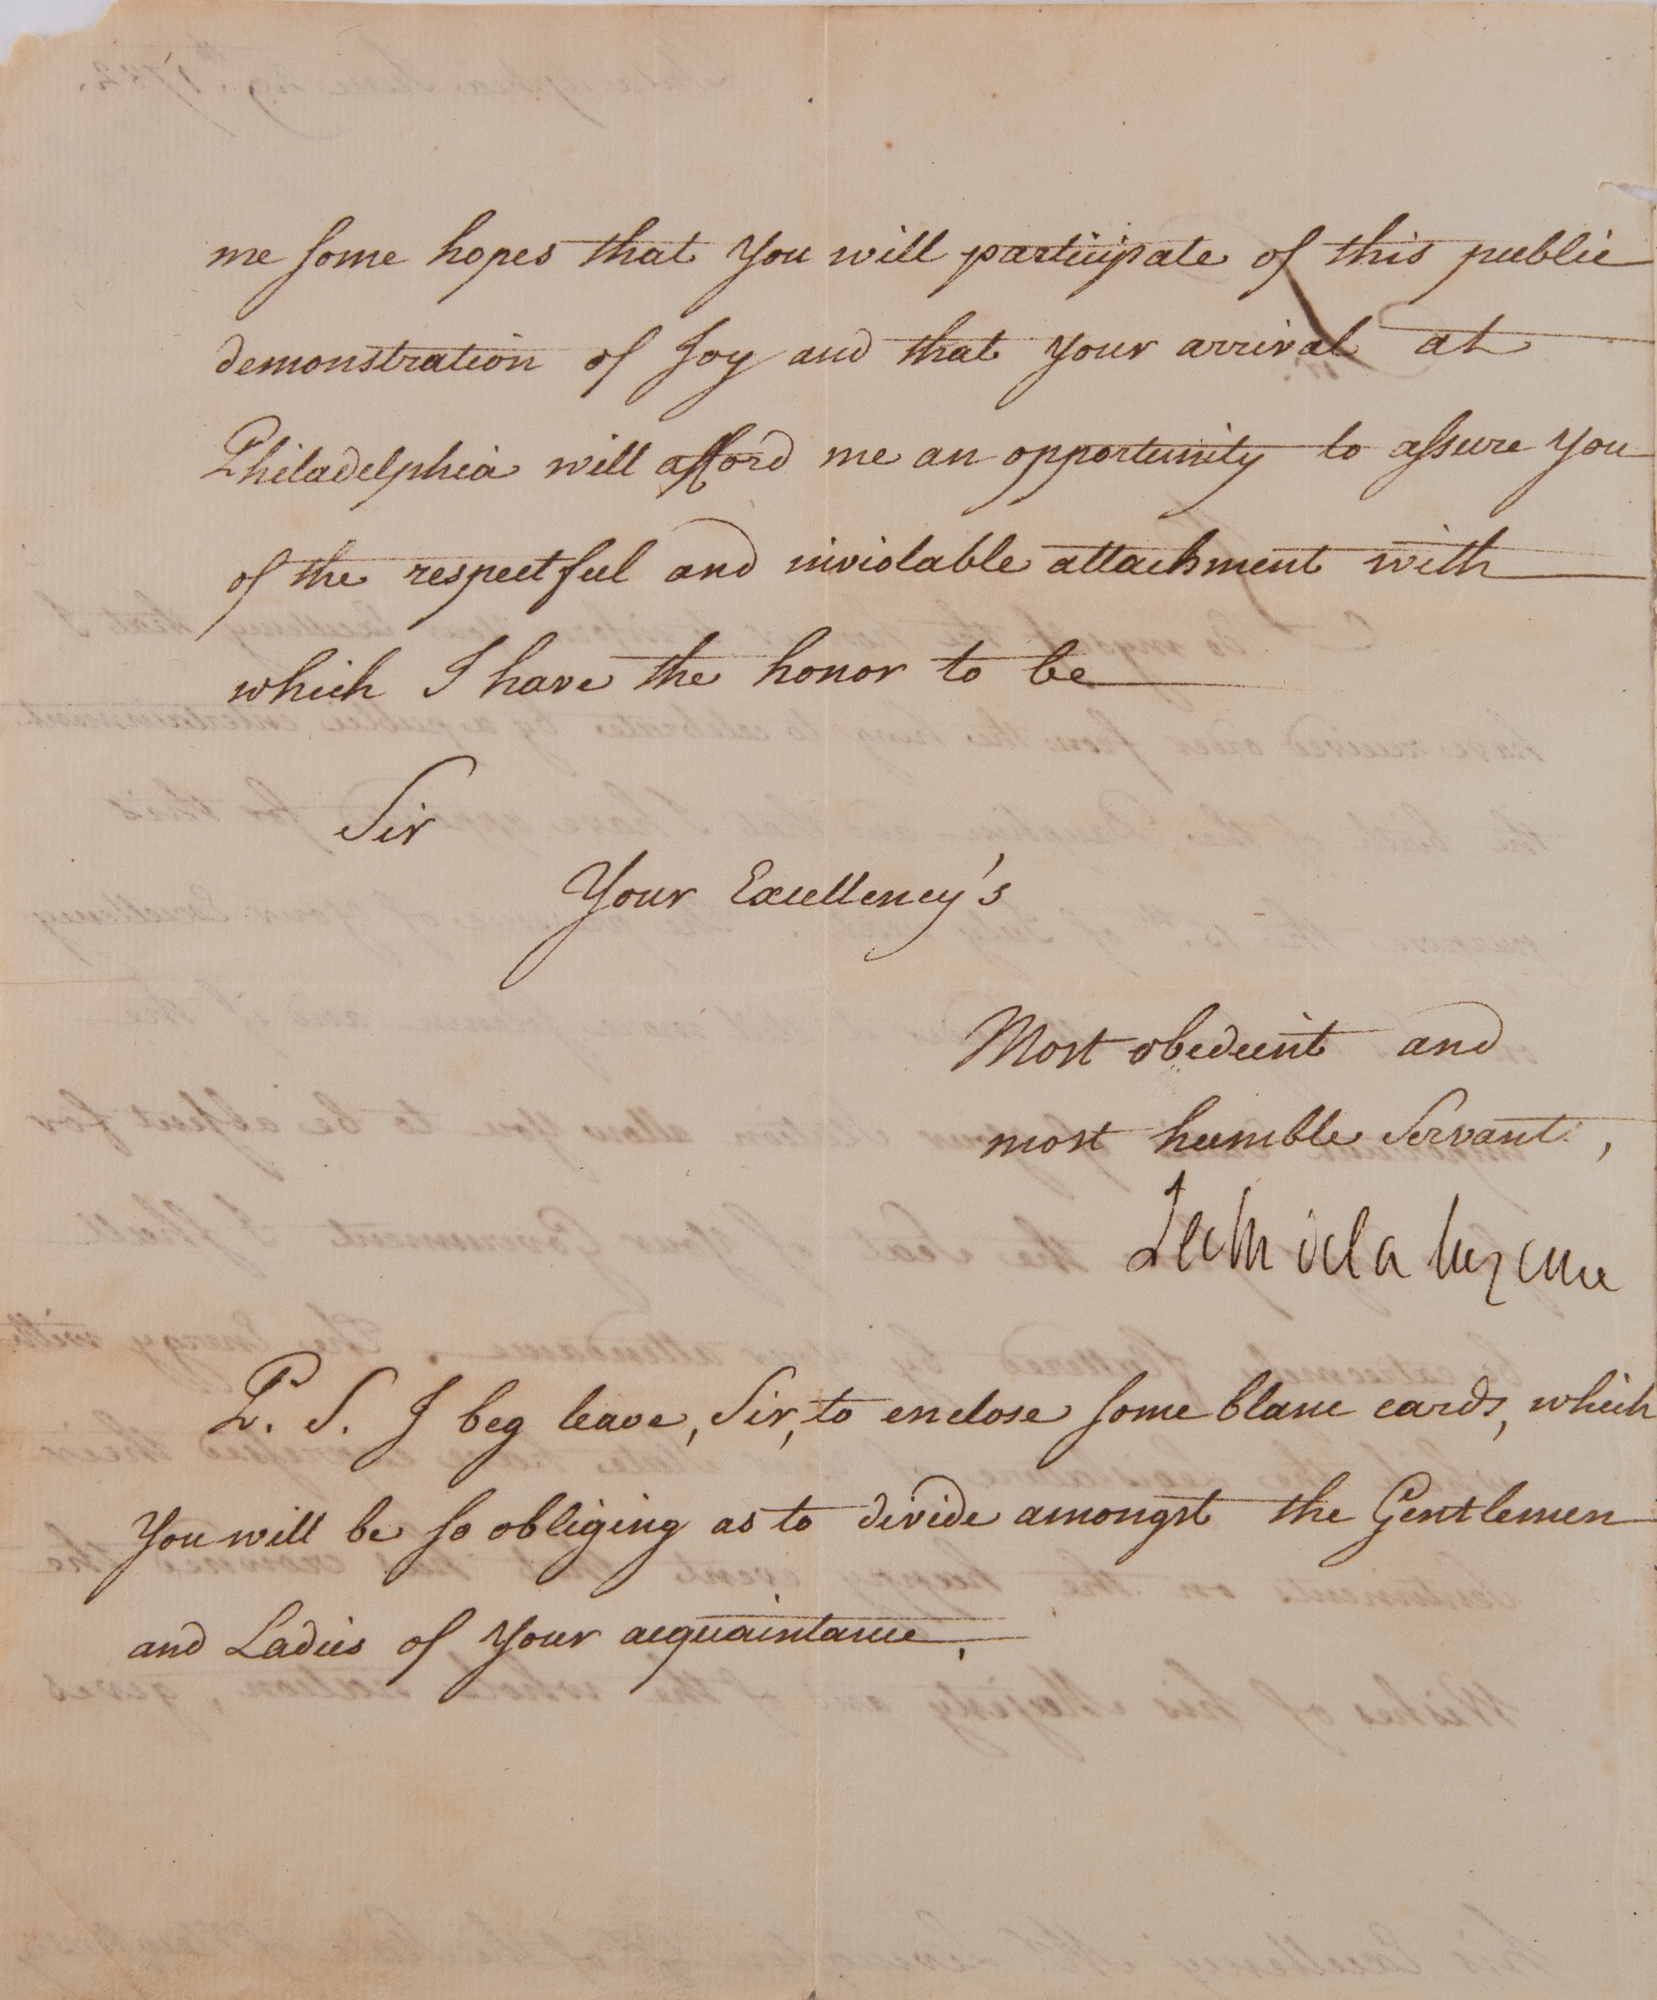 me some hopes that You will participate of this public
demonstration of Joy and that your arrival at
Philadelphia will afford me an opportunity to assure You
of the respectful and inviolable attachment with
which I have the honor to be
Sir
Your Excellency's
Most obedient and
most humble Servant,
Le Ch de la luzerne
P. S. I beg leave, Sir, to enclose some blanc cards, which
You will be so obliging as to divide amongst the Gentlemen
and Ladies of Your acquaintance.